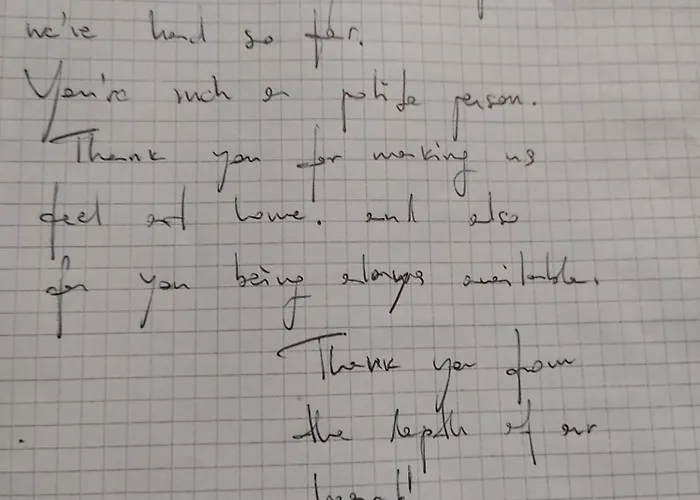 we've had so far.
You're such a polite person.
Thank you for making us
feel at home. and also
for you being always available.
Thank you from
the depth of our